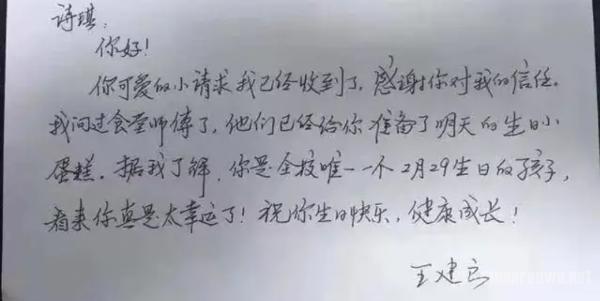 诗琪：
你好！
你可爱的小请求我已经收到了，感谢你对我的信任。
我问过食堂师傅了，他们已经给你准备了明天的生日小
蛋糕。据我了解，你是全校唯一一个2月29生日的孩子，
看来你真是太幸运了！祝你生日快乐，健康成长！
王建